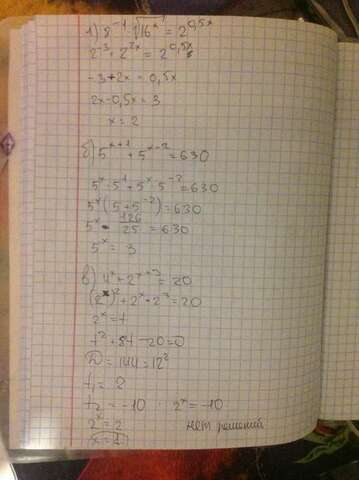 1) 8⁻¹·√16ˣ = 2^0,5x
2⁻³·2²ˣ = 2^0,5x
-3+2x = 0,5x
2x-0,5x = 3
x = 2
б) 5ˣ⁺¹+5ˣ⁻²=630
5ˣ·5¹+5ˣ·5⁻²=630
5ˣ(5+5⁻²)=630
5ˣ · 126/25 = 630
5ˣ = 3
в) 4ˣ+2ˣ⁺³=20
(2ˣ)²+2ˣ·2³=20
2ˣ=t
t²+8t-20=0
D=144=12²
t₁ = 2
t₂ = -10 2ˣ=-10
2ˣ=2 нет решений
x=1